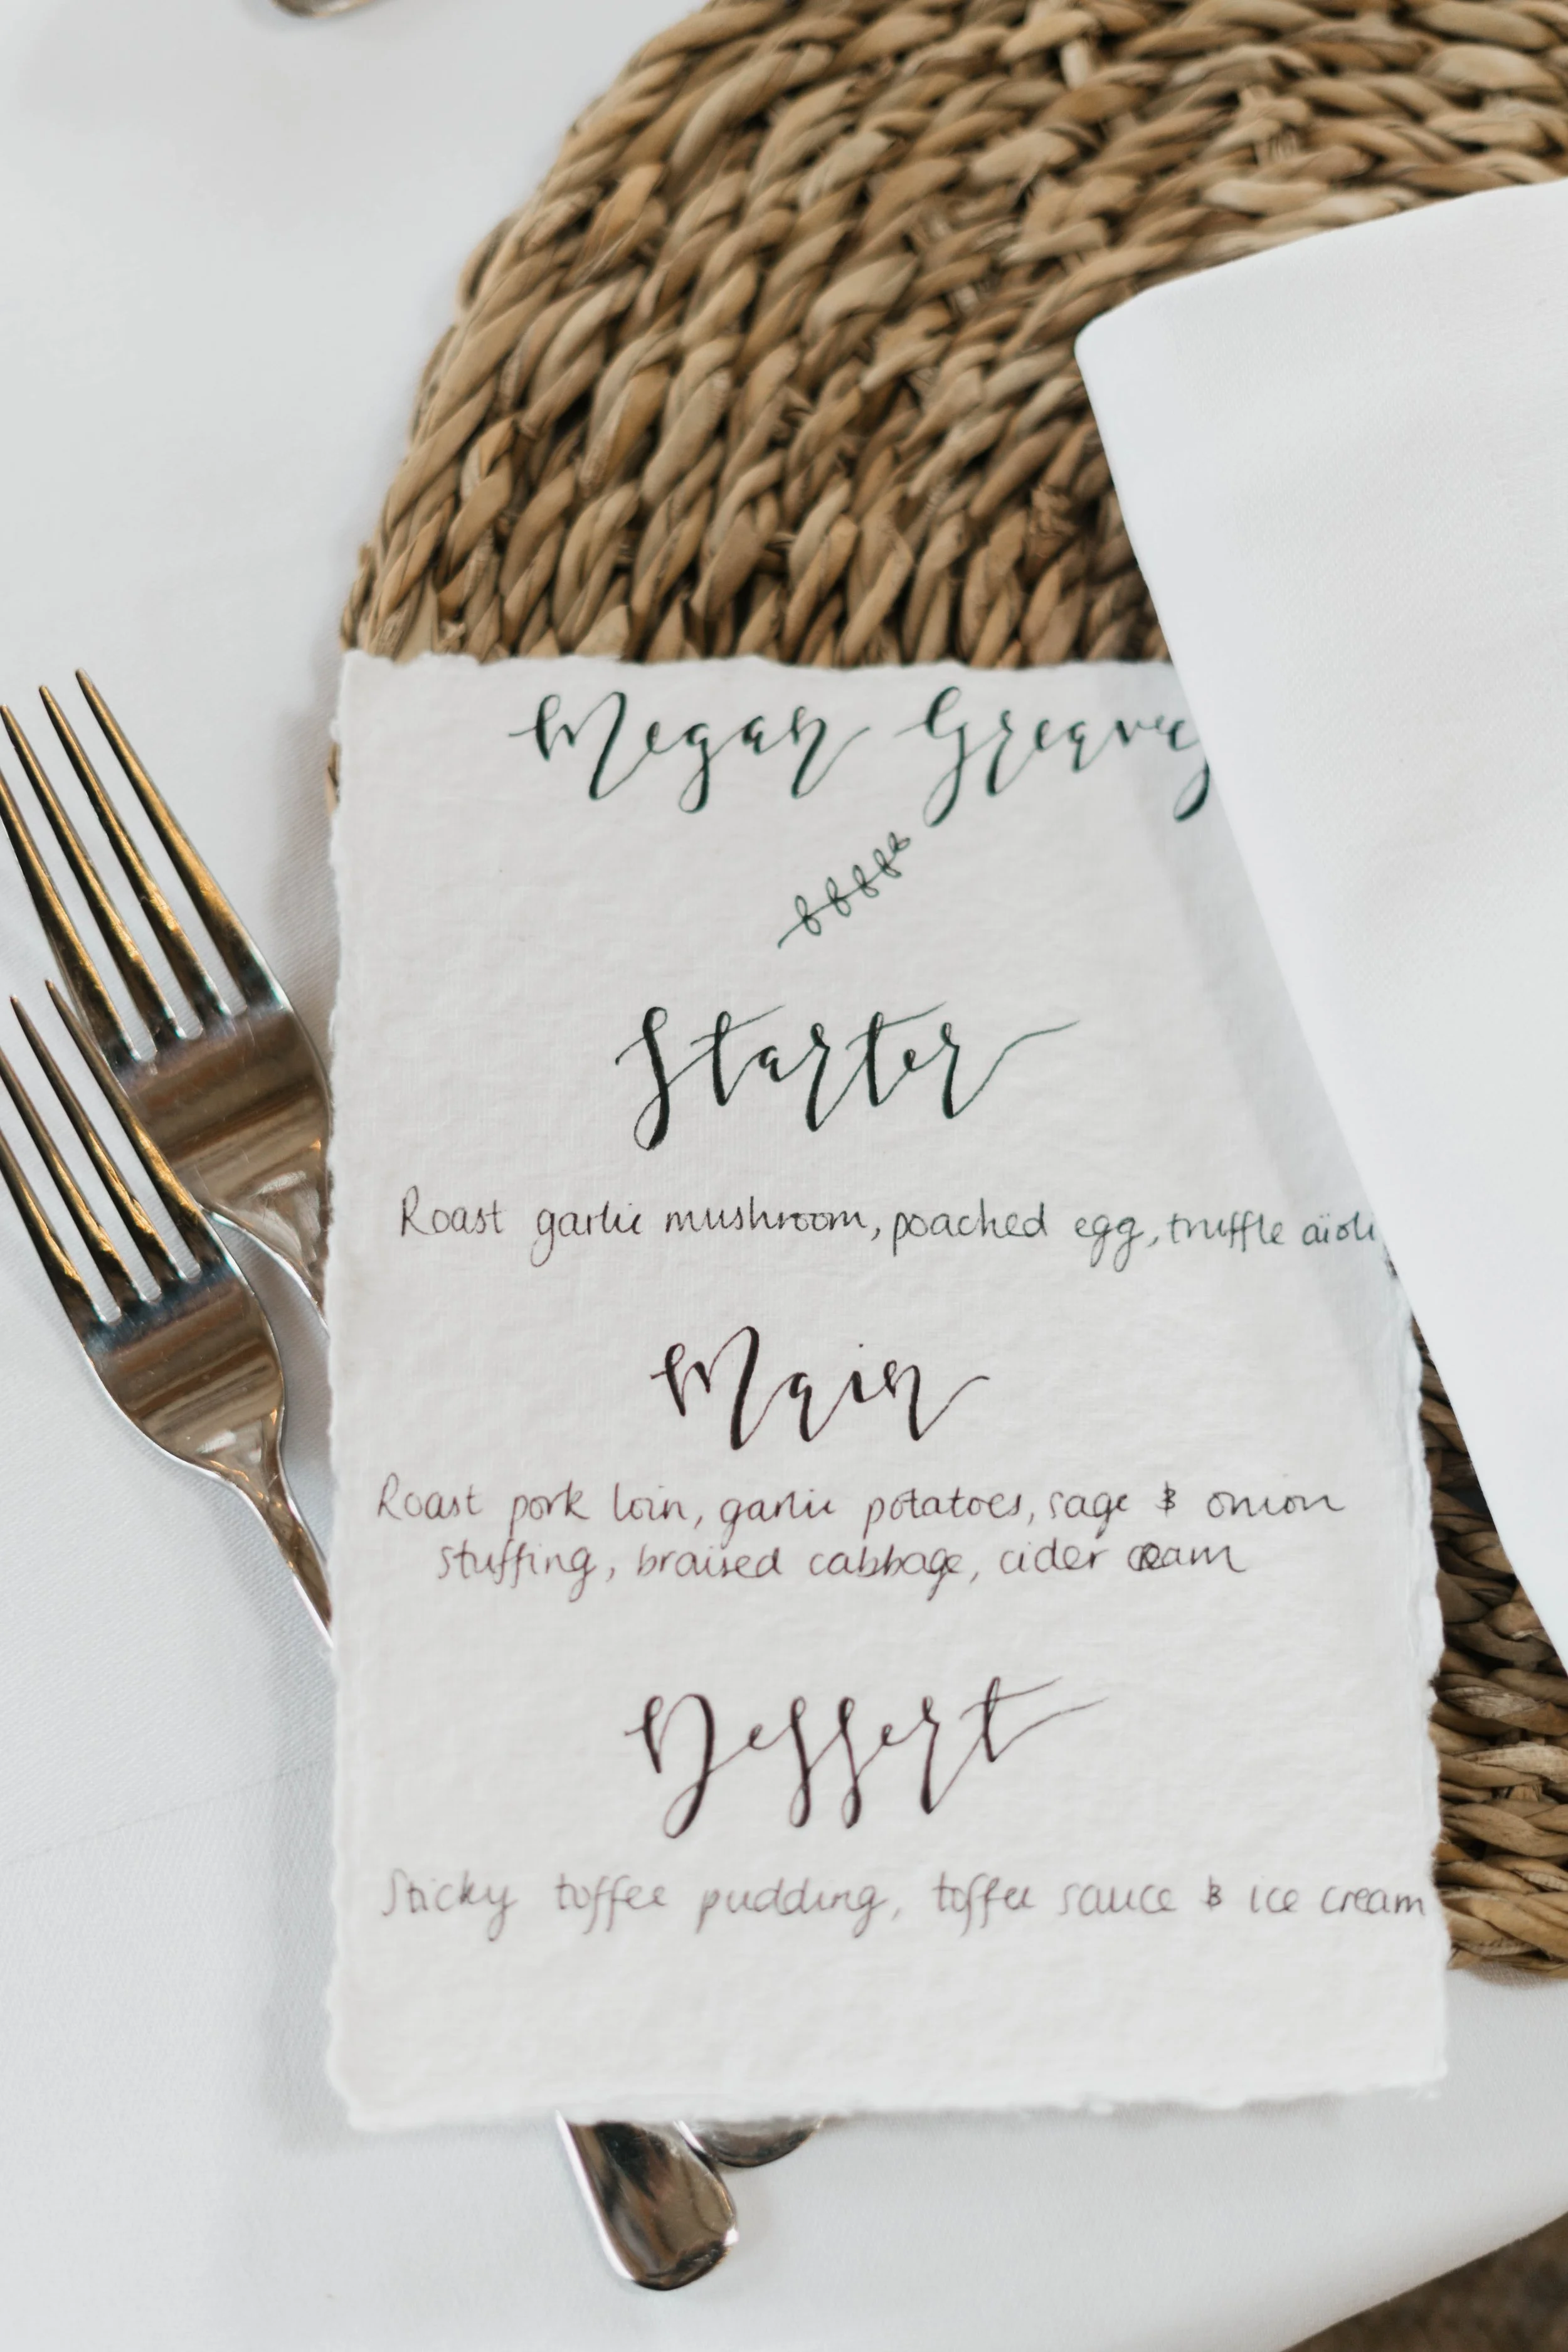 Megan Greaves
Starter
Roast garlic mushroom, poached egg, truffle aioli
Main
Roast pork loin, garlic potatoes, sage & onion
stuffing, braised cabbage, cider cream
Dessert
Sticky toffee pudding, toffee sauce & ice cream